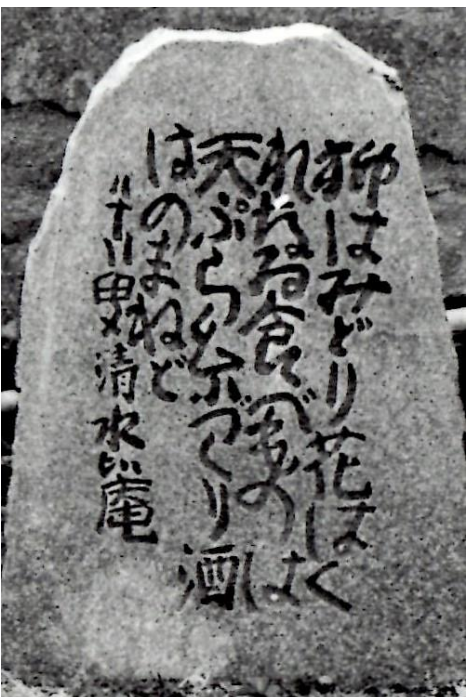 柳はみどり花はく
れなゐ食べものは
天ぷら糸づくり酒
はのまねど
八十八叟清水比庵